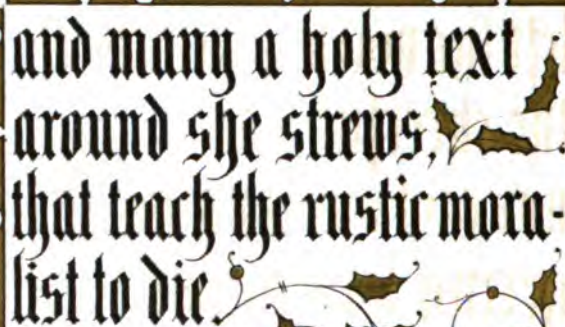 and many a holy text
around she strews,
that teach the rustic mora-
list to die.